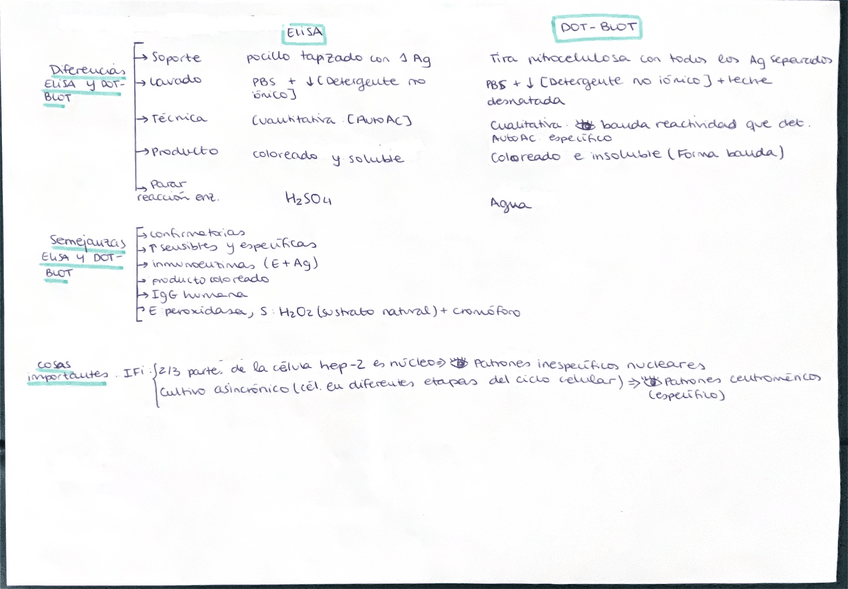 ELISA DOT-BLOT
Diferencias ELISA y DOT-BLOT
Soporte pocillo tapizado con 1 Ag Tira nitrocelulosa con todos los Ag separados
Lavado PBS + ↓ [Detergente no iónico] PBS + ↓ [Detergente no iónico] + leche desnatada
Técnica Cuantitativa. [AutoAc] Cualitativa. banda reactividad que det. AutoAC específico
Producto coloreado y soluble Coloreado e insoluble (Forma banda)
Parar reacción enz. H₂SO₄ Agua
Semejanzas ELISA y DOT-BLOT
confirmatorias
↑ sensibles y específicas
inmunoenzimas (E + Ag)
producto coloreado
IgG humana
E peroxidasa, S: H₂O₂ (sustrato natural) + cromóforo
cosas importantes. IFi: 2/3 partes de la célula hep-2 es núcleo ⇒ Patrones inespecíficos nucleares
Cultivo asincrónico (cél. en diferentes etapas del ciclo celular) ⇒ Patrones centroméricos
(específico)